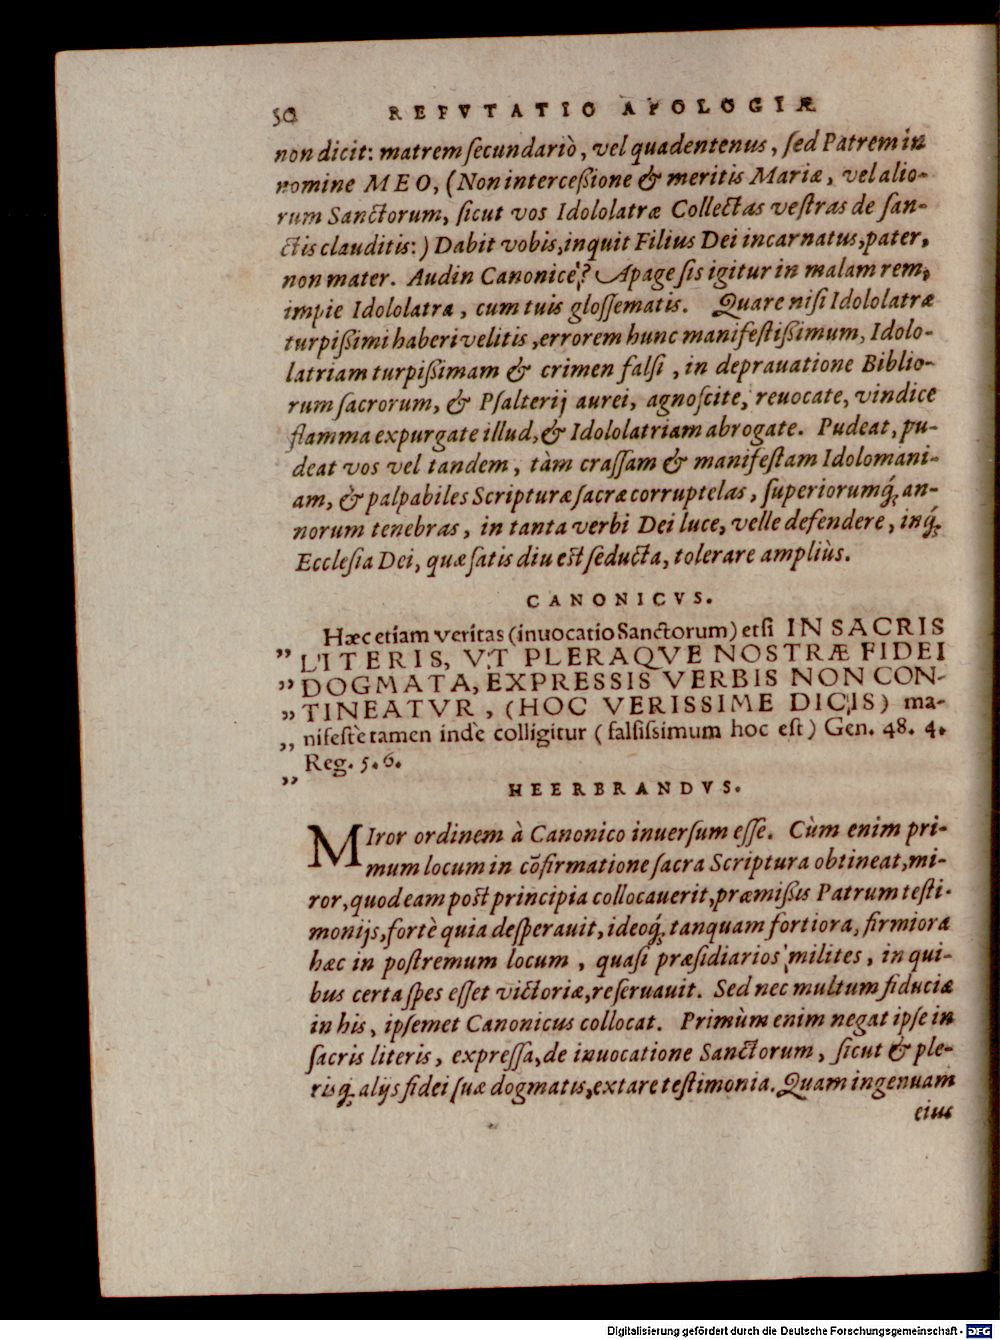 50 REFVTATIO APOLOGIÆ
non dicit: matrem ſecundariò, vel quadentenus, ſed Patrem in
nomine MEO, (Non interceßione & meritis Mariæ, vel alio-
rum Sanctorum, ſicut vos Idololatræ Collectas veſtras de ſan-
ctis clauditis:) Dabit vobis, inquit Filius Dei incarnatus, pater,
non mater. Audin Canonice? Apage ſis igitur in malam rem,
impie Idololatra, cum tuis gloſſematis. Quare niſi Idololatræ
turpißimi haberi velitis, errorem hunc manifeſtißimum, Idolo-
latriam turpißimam & crimen falſi, in deprauatione Biblio-
rum ſacrorum, & Pſalterij aurei, agnoſcite, reuocate, vindice
flamma expurgate illud, & Idololatriam abrogate. Pudeat, pu-
deat vos vel tandem, tàm craſſam & manifeſtam Idolomani-
am, & palpabiles Scripturæ ſacræ corruptelas, ſuperiorumq́; an-
norum tenebras, in tanta verbi Dei luce, velle defendere, inq́;
Eccleſia Dei, quæ ſatis diu est ſeducta, tolerare ampliùs.
CANONICVS.
Hæc etiam veritas (inuocatio Sanctorum) etſi IN SACRIS
„ LITERIS, VT PLERAQVE NOSTRÆ FIDEI
„ DOGMATA, EXPRESSIS VERBIS NON CON-
„ TINEATVR, (HOC VERISSIME DICIS) ma-
„ nifeſtè tamen indè colligitur (falſiſsimum hoc eſt) Gen. 48. 4.
„ Reg. 5. 6.
HEERBRANDVS.
MIror ordinem à Canonico inuerſum eſſe. Cùm enim pri-
mum locum in cõfirmatione ſacra Scriptura obtineat, mi-
ror, quod eam post principia collocauerit, præmißis Patrum teſti-
monijs, fortè quia deſperauit, ideoq́; tanquam fortiora, firmiora
hæc in poſtremum locum, quaſi præſidiarios milites, in qui-
bus certa ſpes eſſet victoriæ, reſeruauit. Sed nec multum fiduciæ
in his, ipſemet Canonicus collocat. Primùm enim negat ipſe in
ſacris literis, expreſſa, de inuocatione Sanctorum, ſicut & ple-
risq́; alijs fidei ſuæ dogmatis, extare teſtimonia. Quam ingenuam
eius
Digitalisierung gefördert durch die Deutsche Forschungsgemeinschaft - DFG